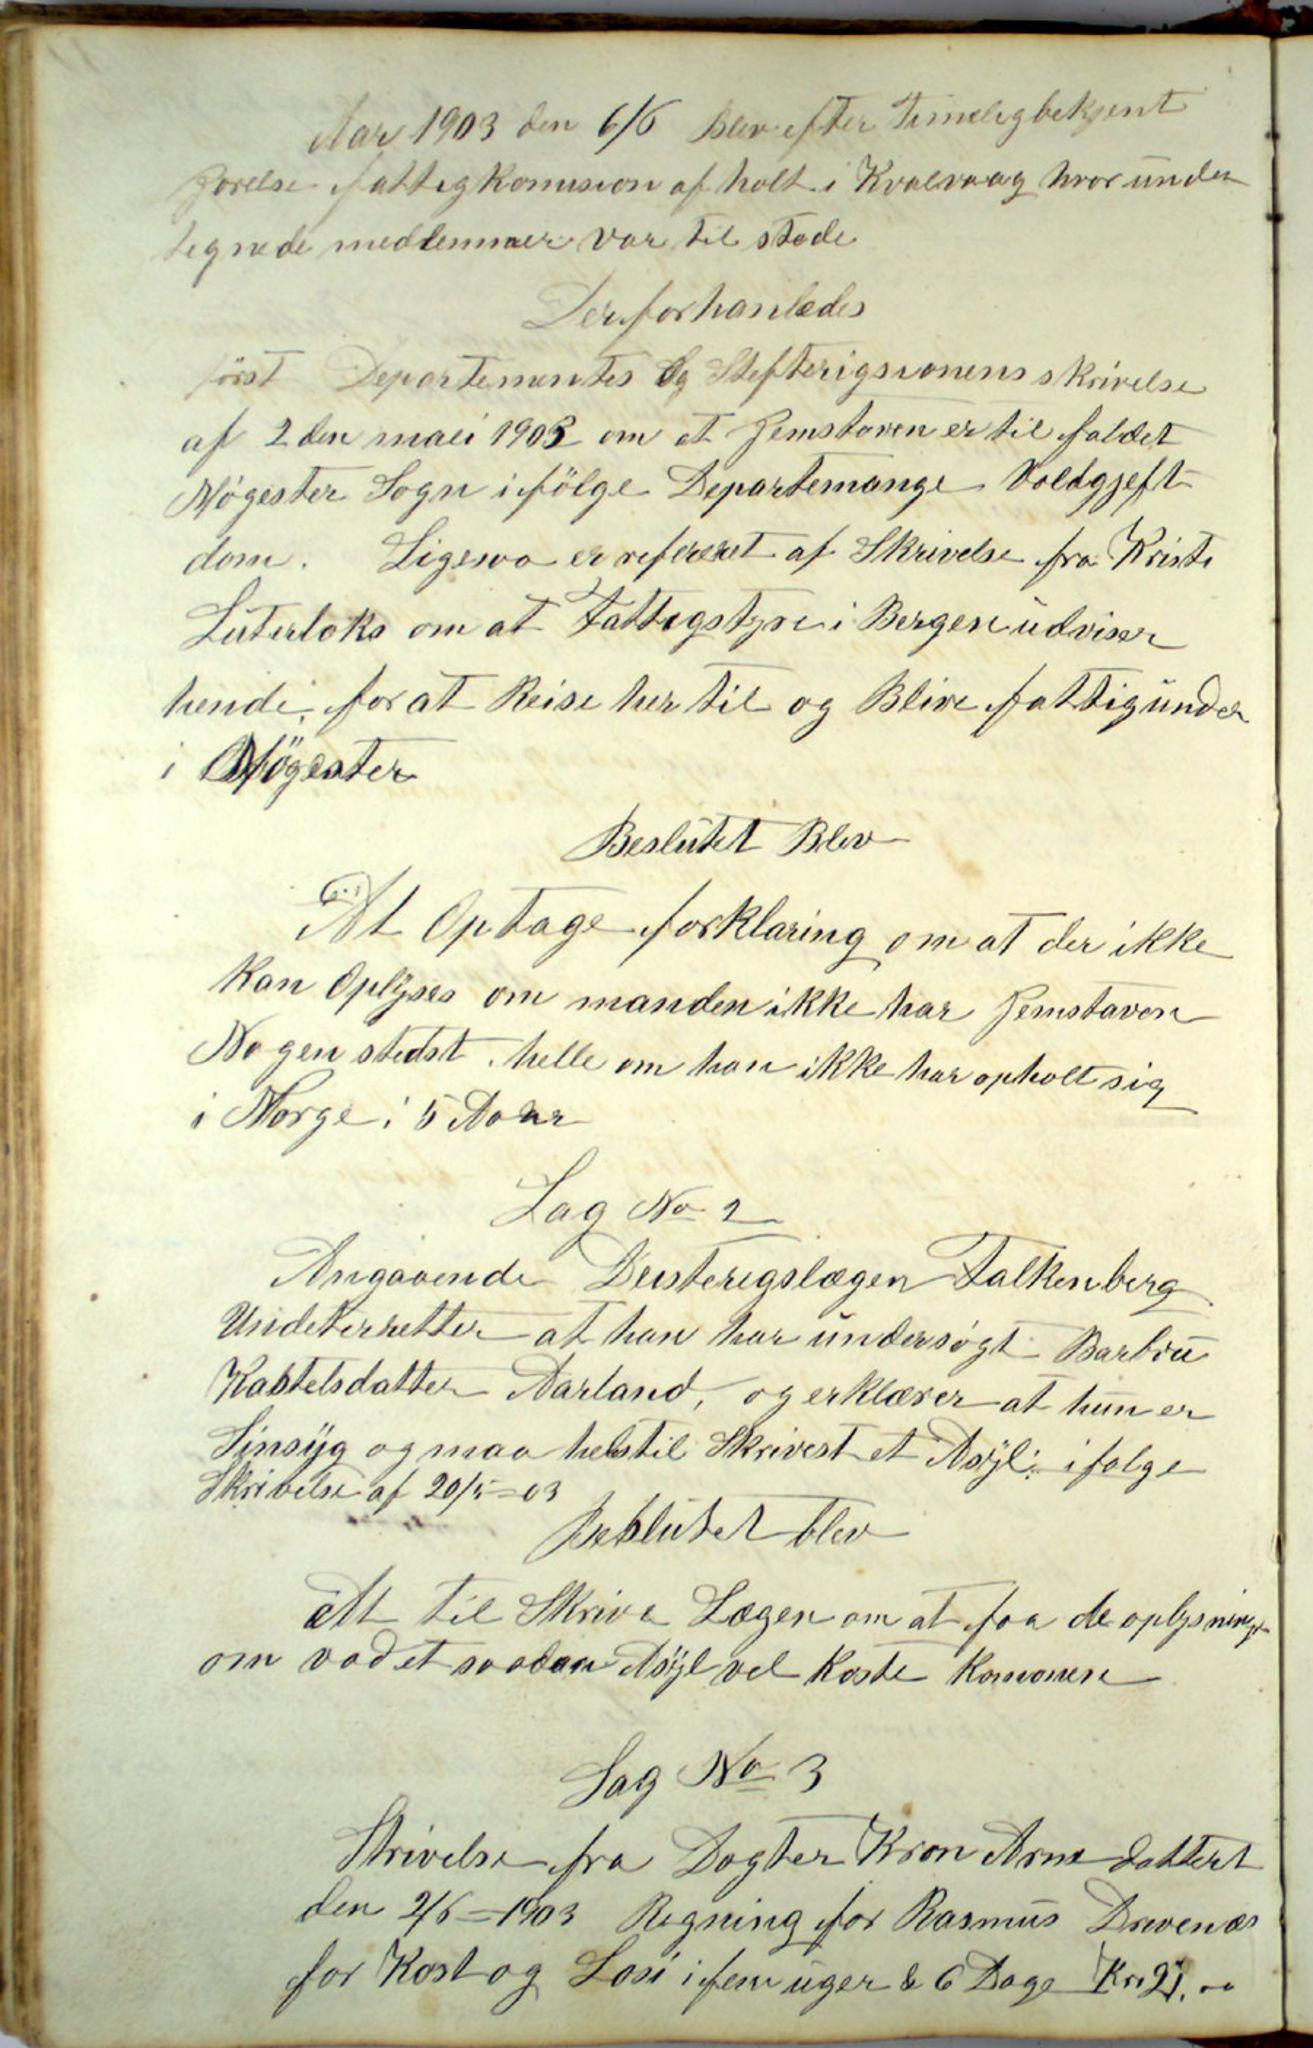 Aar 1903 den 6/6 Blev efter Timeligbekjent
gorelse fattigkomision af holt i Kvalvaag hvor under
tegnede medlemmer var til stede
Der forhanledes
först Departementes Og Stefterigsionens skrivelse
af 2 den maei 1903 om at Hemstaven er til faldet
Møgester Sogn ifölge Departemange Voldgjeft
dom. Ligesoa er referæret af Skrivelse fra Kristi
Luterloks om at Fattigstyre i Bergen udviser
hende, for at Reise her til og Blive fattigunder
i Mögester
Beslutet Blev
At Optage forklaring om at der ikke
Kan Oplyses om manden ikke har Hemstaven
Nogen stedst. helle om han ikke har opholt sig
i Norge i 5 Aoar
Sag No 2
Angaaende Desterigslægen Falkenberg
Undeterretter at han har undersøgt Barbru
Kastelsdatter Aarland, og erklærer at hun er
Sinsyg og maa helstil Skrivest et Asyl: ifolge
Skrivelse af 20/5=03
Beslutet blev
At til Skrive Lægen om at faa de oplysninger
om vad et saadan Asyl vel Koste Komonen
Sag No 3
Skrivelse fra Dogter Kron Arne dattert
den 2/6=1903 Regning for Rasmus Drevenæs
for Kost og Losi i fem uger & 6 Dage Kr. 21.